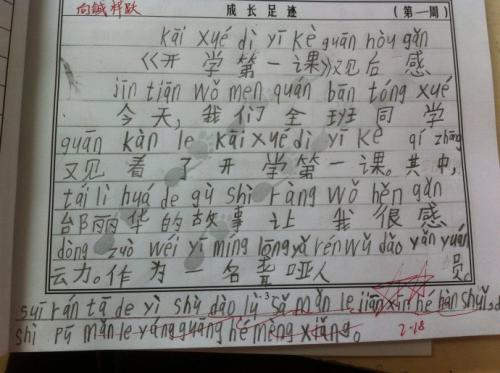 成长足迹 (第一周)
kāi xué dì yī kè guān hòu gǎn
《开学第一课》观后感
jīn tiān wǒ men quán bān tóng xué
今天,我们全班同学
guān kàn le kāi xué dì yī kè qí zhōng
观看了开学第一课。其中,
tái lì huá de gù shì ràng wǒ hěn gǎn
邰丽华的故事让我很感
dòng zuò wéi yī míng lóng yǎ rén wǔ dǎo yǎn yuán
动。作为一名聋哑人 员。
suī rán tā de yì shù dào lù sǎ mǎn le jiān xīn hé hàn shuǐ, d
shì pū mǎn le yáng guāng hé mèng xiǎng。
2-18